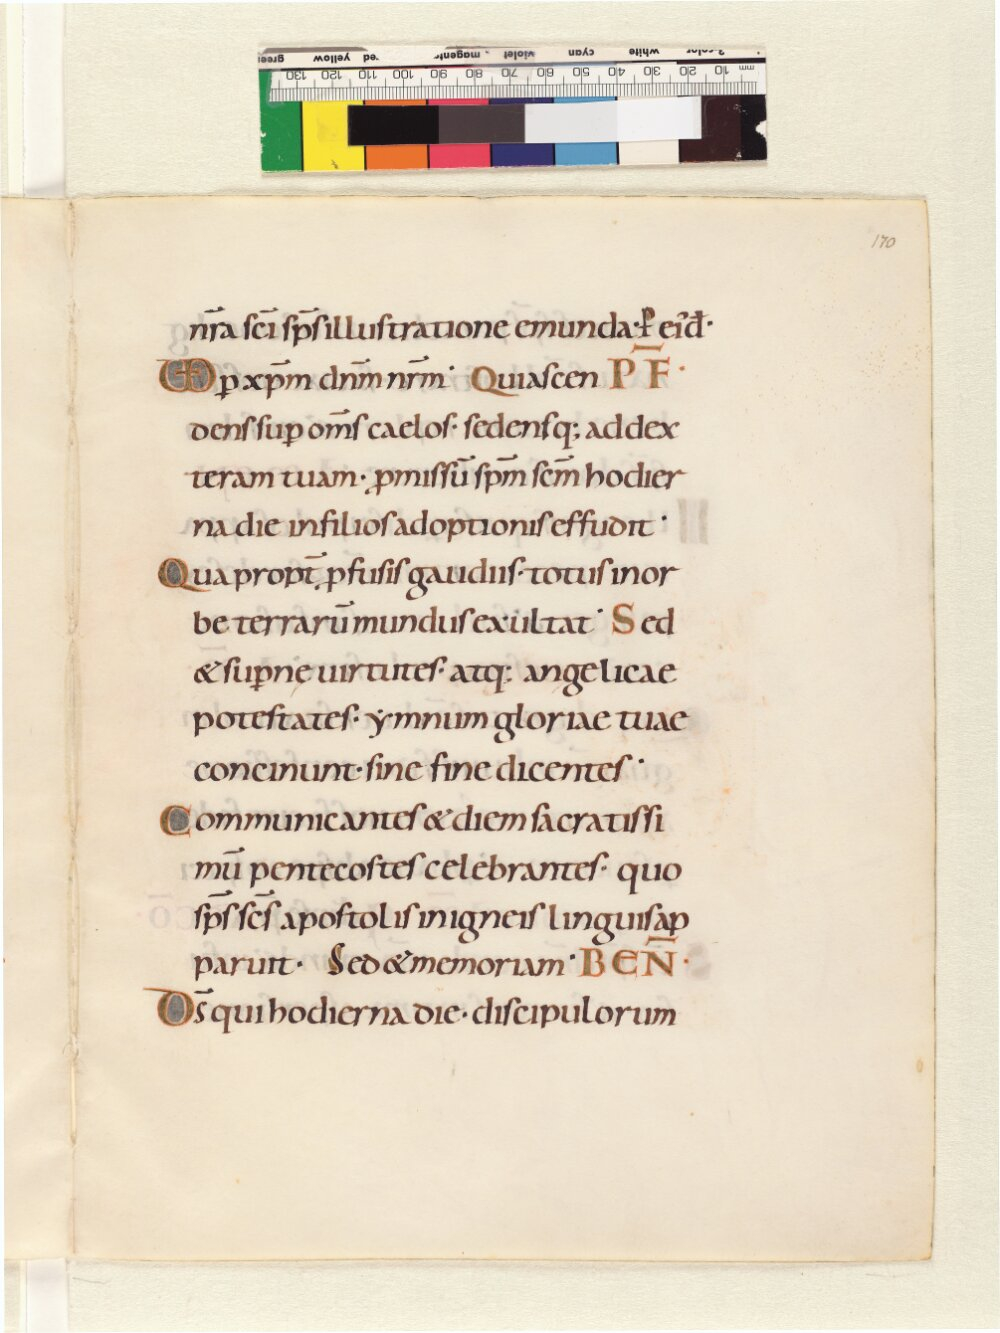 170
nr̄a sc̄i sp̄s illustratione emunda· ꝑ eiꝰđ·
UD p xp̄m dn̄m nr̄m· Quiascen P̄F̄·
dens sup om̄s caelos· sedensq; ad dex
teram tuam· ꝓmissū sp̄m sc̄m hodier
na die in filios adoptionis effudit·
Qua propt̄ ꝓfusis gaudiis· totus in or
be terrarū mundus exultat· Sed
& supꝑne uirtutes· atq; angelicae
potestates· ẏmnum gloriae tuae
concinunt· sine fine dicentes·
Communicantes & diem sacratissi
mū pentecostes celebrantes· quo
sp̄s sc̄s apostolis in igneis linguis ap
paruit· Sed & memoriam· BEN̄·
Ds̄ qui hodierna die· discipulorum